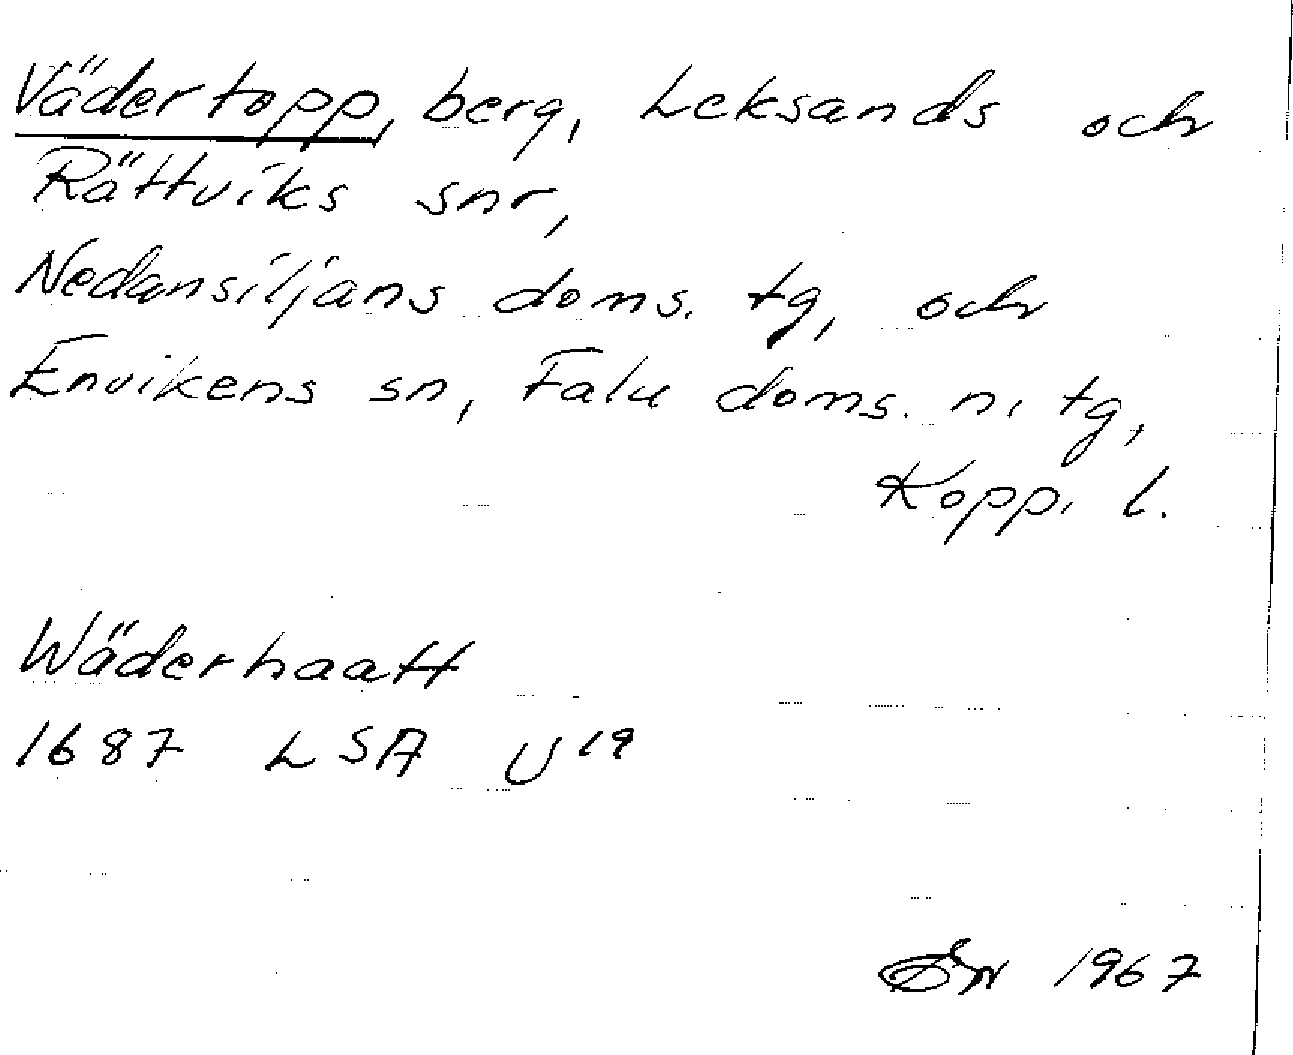 Vädertopp, berg, Leksands och
Rättviks snr,
Nedansiljans doms. tg, och
Envikens sn, Falu doms. n. tg,
Kopp. l.
Wäderhaatt
1687 LSA U19
1967